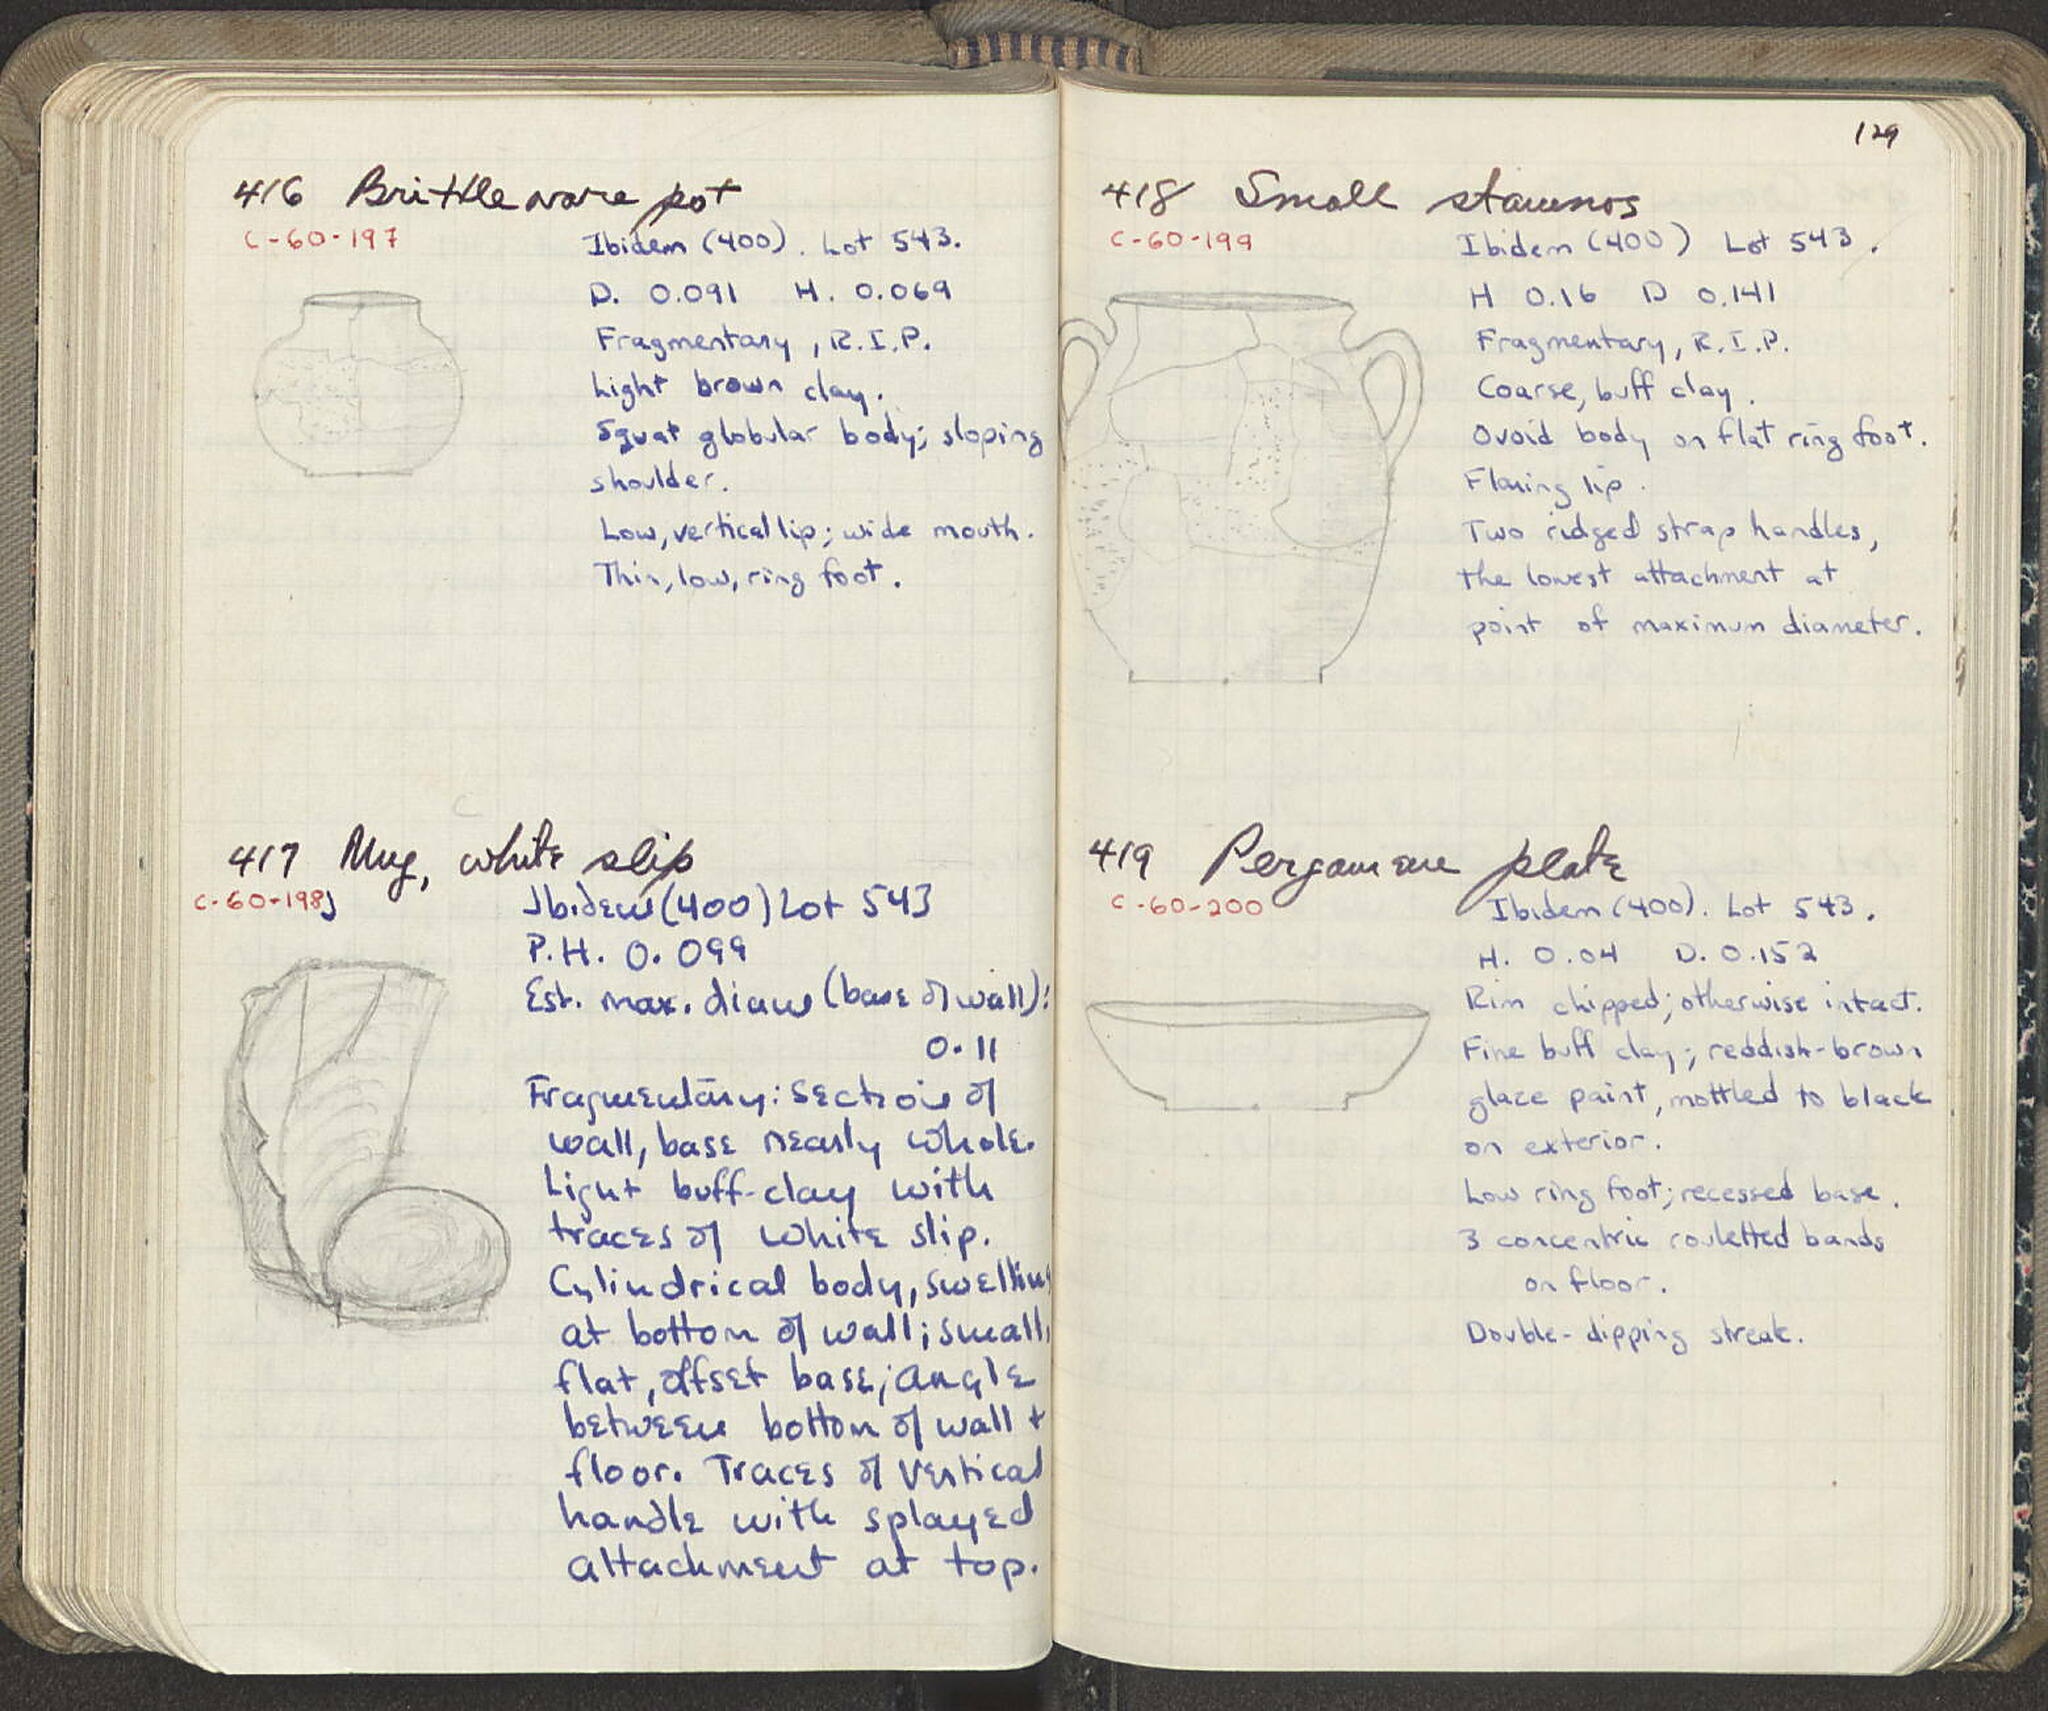 416 Brittle ware pot
C-60-197
Ibidem (400). Lot 543.
D. 0.091 H. 0.069
Fragmentary, R.I.P.
Light brown clay.
Squat globular body; sloping
shoulder.
Low, vertical lip; wide mouth.
Thin, low, ring foot.
417 Mug, white slip
C-60-198
Ibidem (400) Lot 543
P.H. 0.099
Est. max. diam (base of wall):
0.11
Fragmentary: section of
wall, base nearly whole.
Light buff-clay with
traces of white slip.
Cylindrical body, swelling
at bottom of wall; small,
flat, offset base; angle
between bottom of wall +
floor. Traces of vertical
handle with splayed
attachment at top.
129
418 Small stamnos
C-60-199
Ibidem (400) Lot 543.
H 0.16 D 0.141
Fragmentary, R.I.P.
Coarse, buff clay.
Ovoid body on flat ring foot.
Flaring lip.
Two ridged strap handles,
the lowest attachment at
point of maximum diameter.
419 Pergamene plate
C-60-200
Ibidem (400). Lot 543.
H. 0.04 D. 0.152
Rim chipped; otherwise intact.
Fine buff clay; reddish-brown
glaze paint, mottled to black
on exterior.
Low ring foot; recessed base.
3 concentric rouletted bands
on floor.
Double-dipping streak.